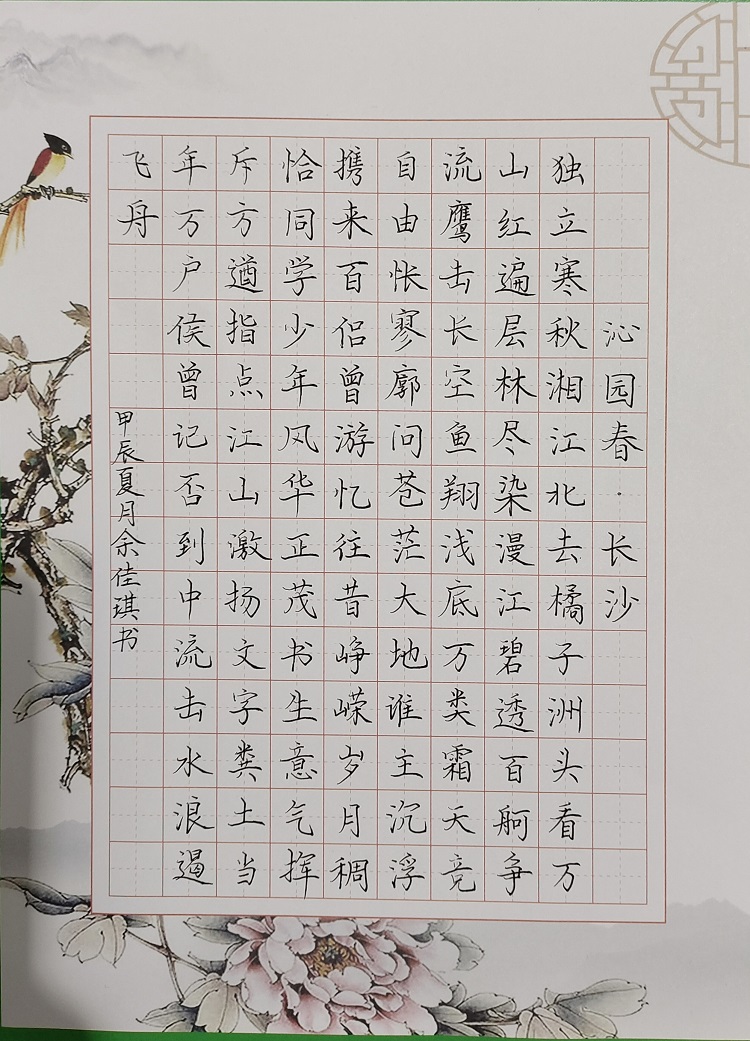 沁园春·长沙
独立寒秋湘江北去橘子洲头看万
山红遍层林尽染漫江碧透百舸争
流鹰击长空鱼翔浅底万类霜天竞
自由怅寥廓问苍茫大地谁主沉浮
携来百侣曾游忆往昔峥嵘岁月稠
恰同学少年风华正茂书生意气挥
斥方遒指点江山激扬文字粪土当
年万户侯曾记否到中流击水浪遏
飞舟
甲辰夏月余佳琪书